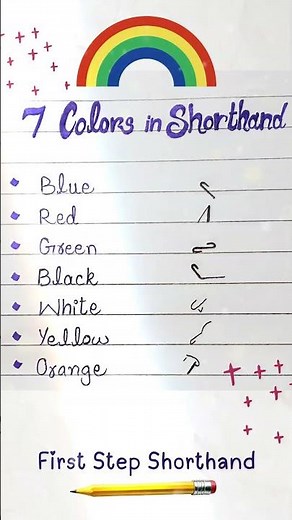 7 Colors in Shorthand
Blue
Red
Green
Black
White
Yellow
Orange
First Step Shorthand